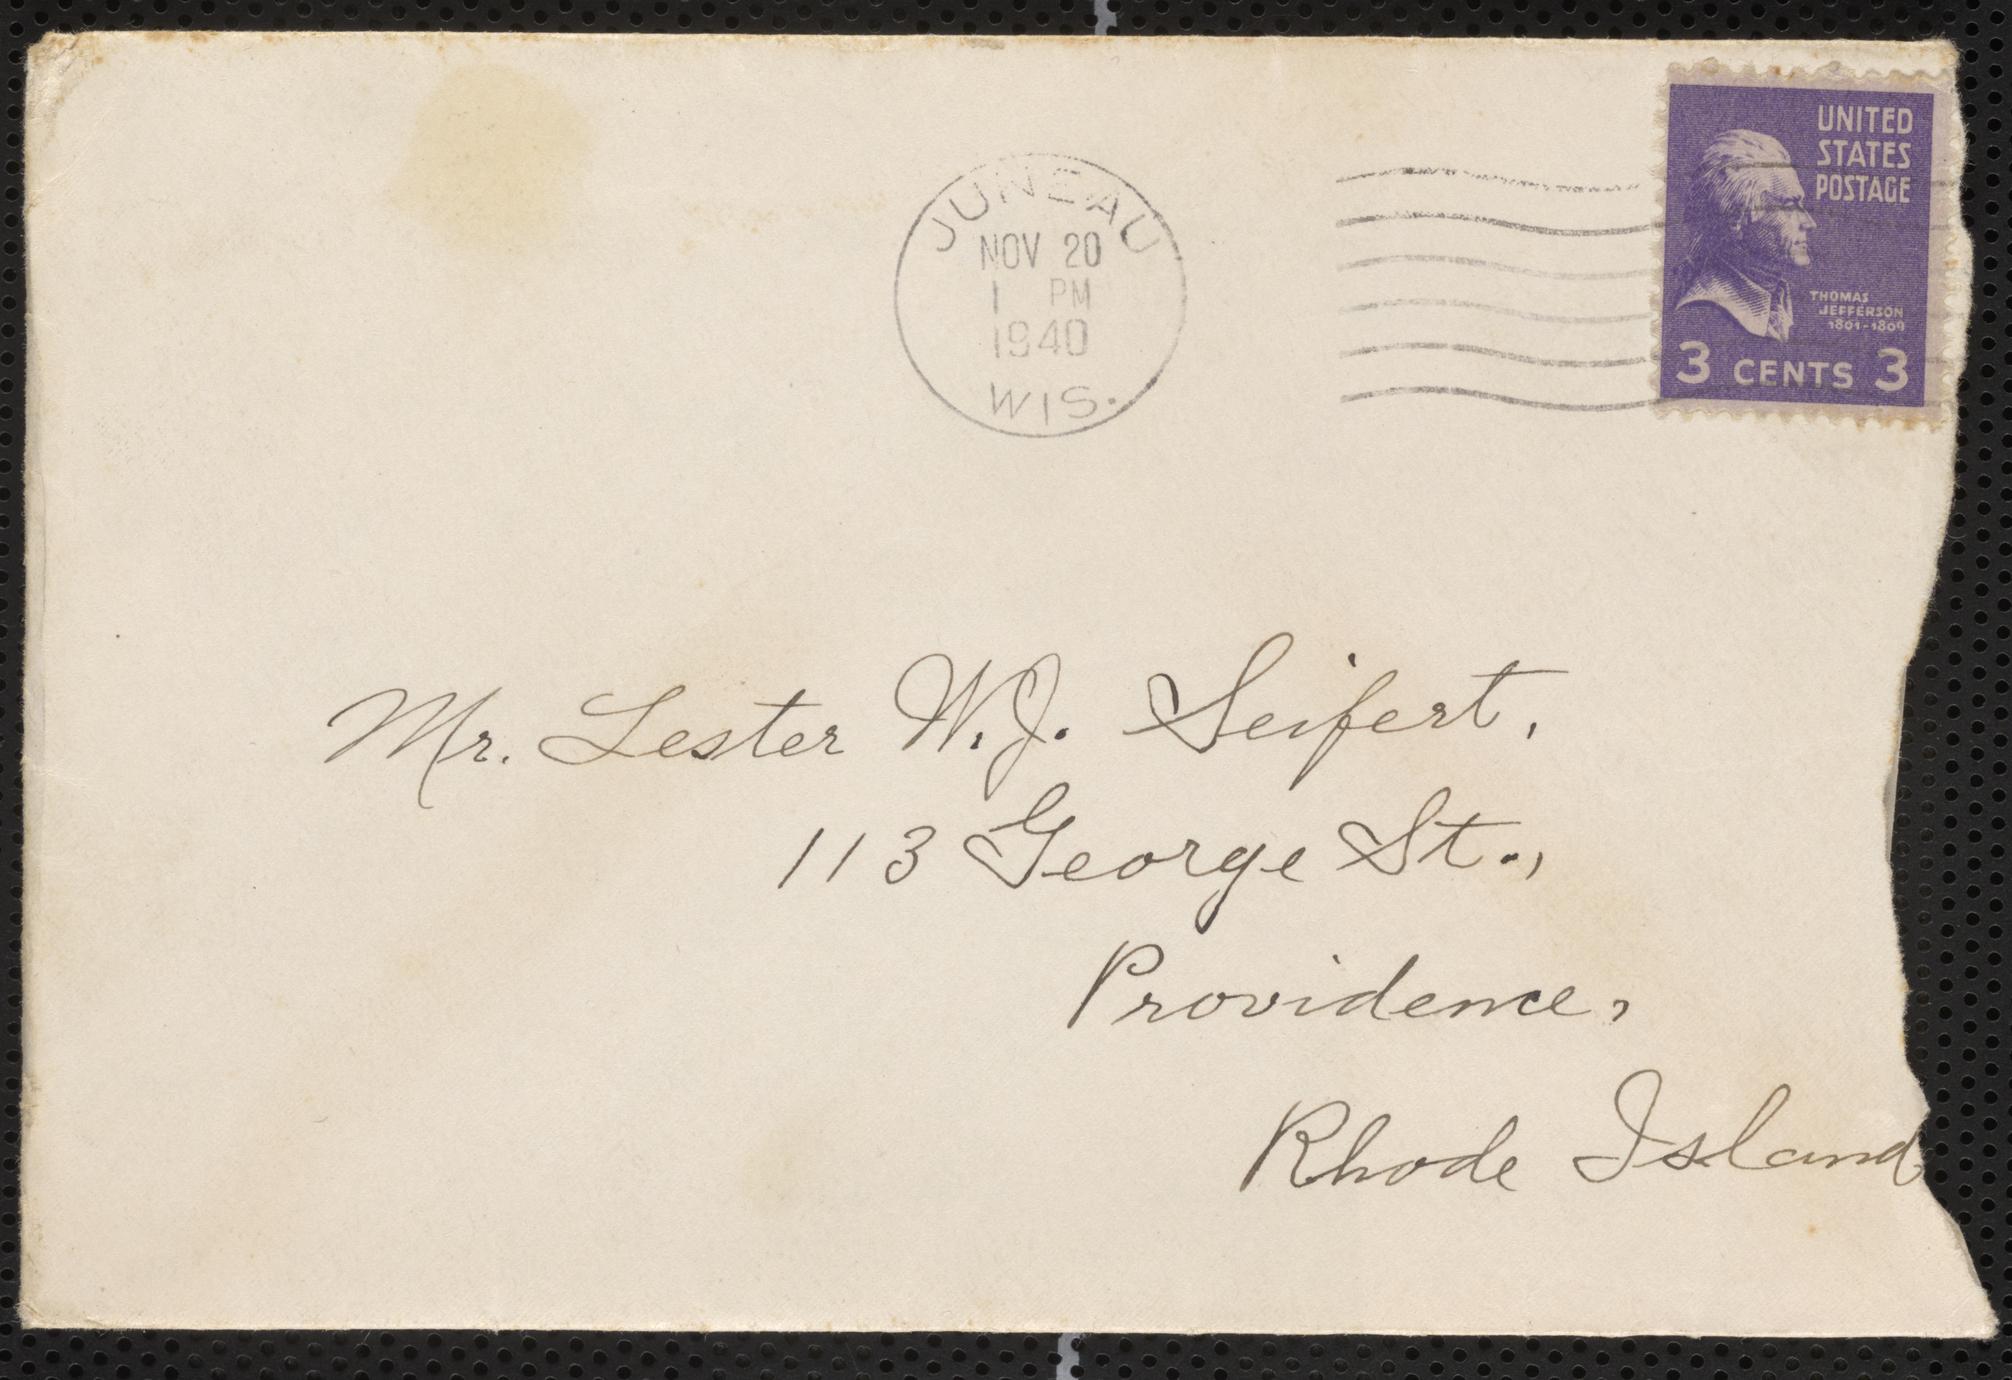 JUNEAU
NOV 20
1 PM
1940
WIS.
UNITED
STATES
POSTAGE
THOMAS
JEFFERSON
1801-1809
3 CENTS 3
Mr. Lester W.J. Seifert,
113 George St.,
Providence,
Rhode Island